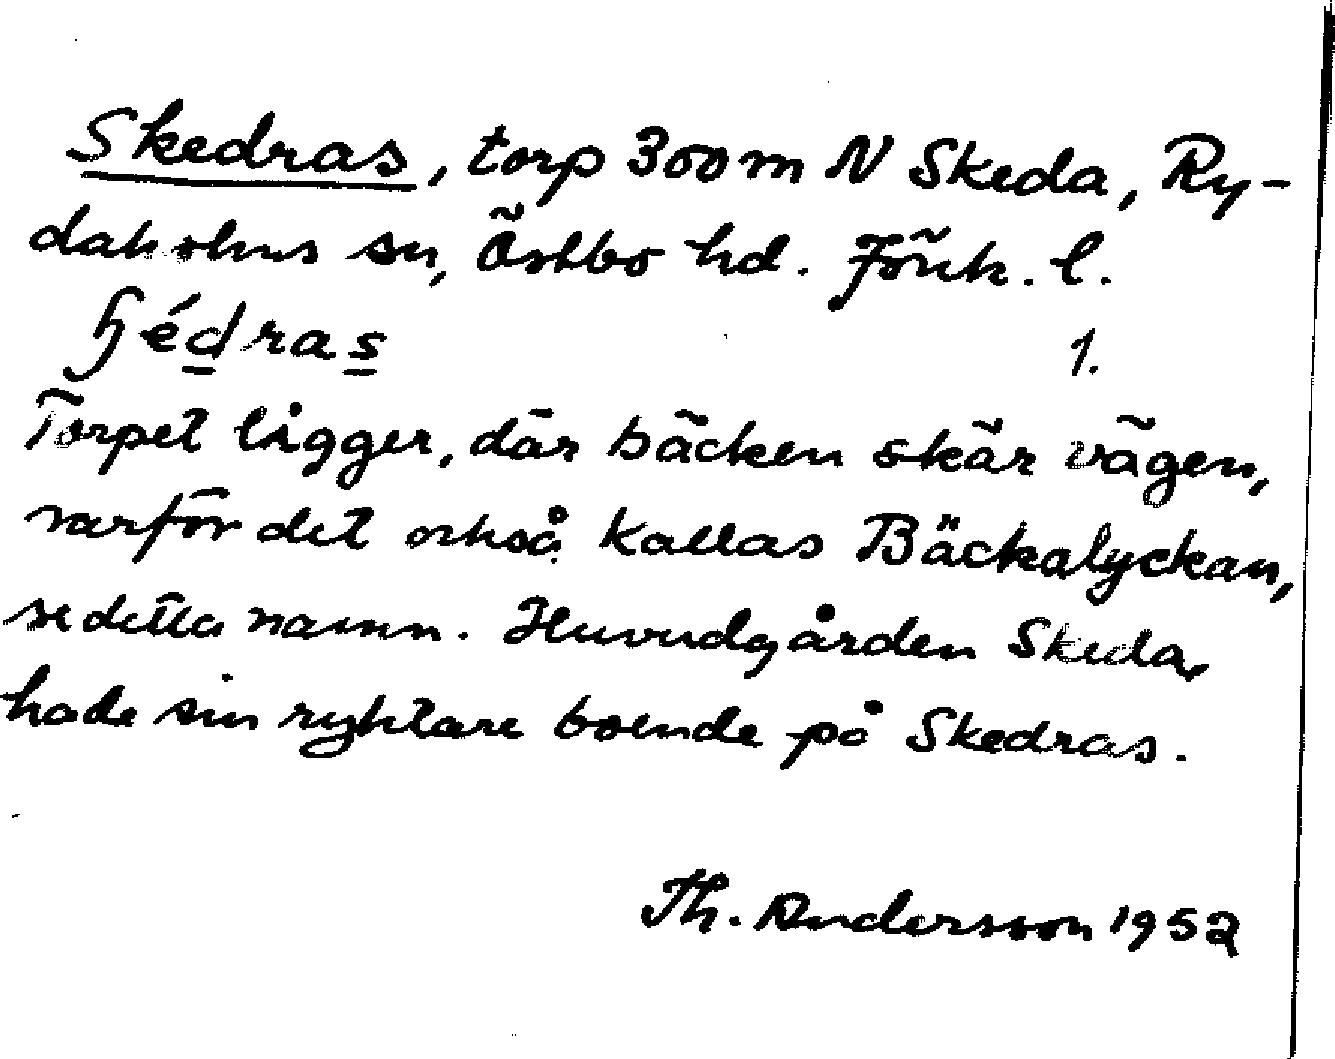 Skedras, torp 300 m N Skeda, Ry-
daholms sn, Östbo hd. Jönk. l.
ɧédras 1.
Torpet ligger, där bäcken skär vägen,
varför det också kallas Bäckalyckan,
se detta namn. Huvudgården Skeda,
hade sin ryktare boende på Skedras.
Th. Andersson 1952